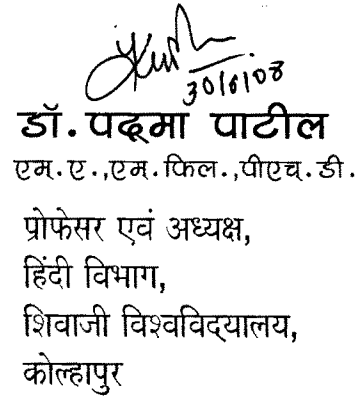 30/6/08
डॉ. पद्मा पाटील
एम. ए.,एम. फिल.,पीएच. डी.
प्रोफेसर एवं अध्यक्ष,
हिंदी विभाग,
शिवाजी विश्वविद्यालय,
कोल्हापुर